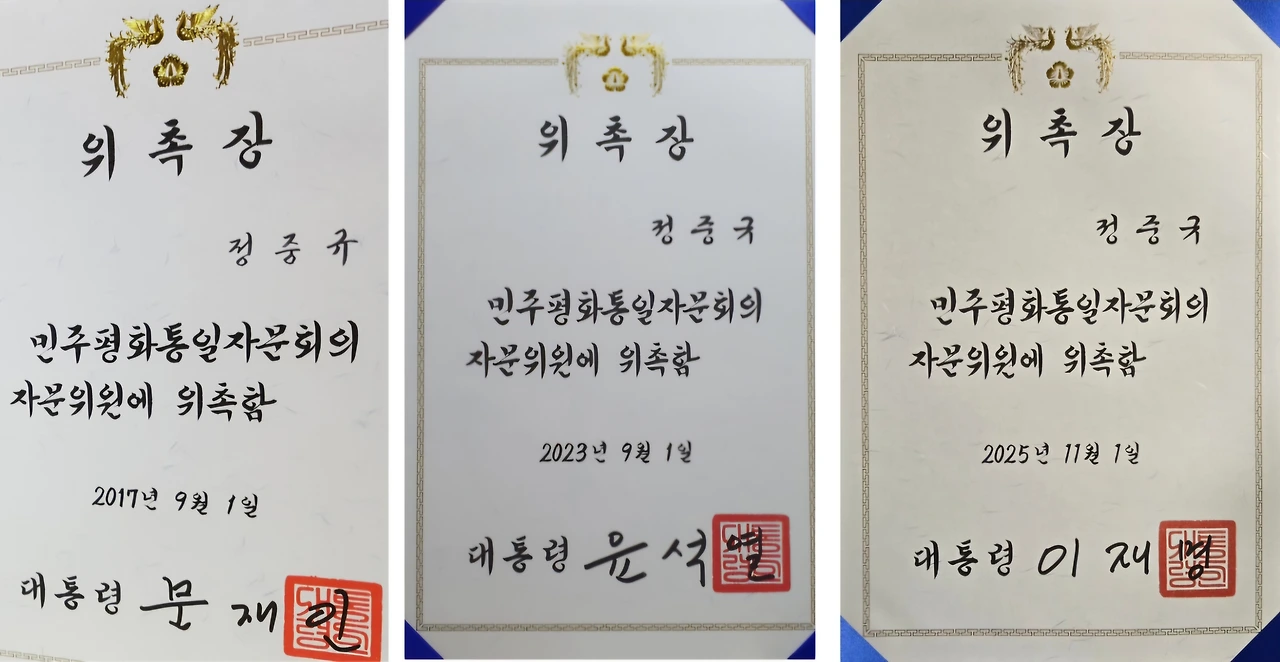 위 촉 장
정 중 규
민주평화통일자문회의
자문위원에 위촉함
2017년 9월 1일
대통령 문 재 인
위 촉 장
정 중 규
민주평화통일자문회의
자문위원에 위촉함
2023년 9월 1일
대통령 윤 석 열
위 촉 장
정 중 규
민주평화통일자문회의
자문위원에 위촉함
2025년 11월 1일
대통령 이 재 명